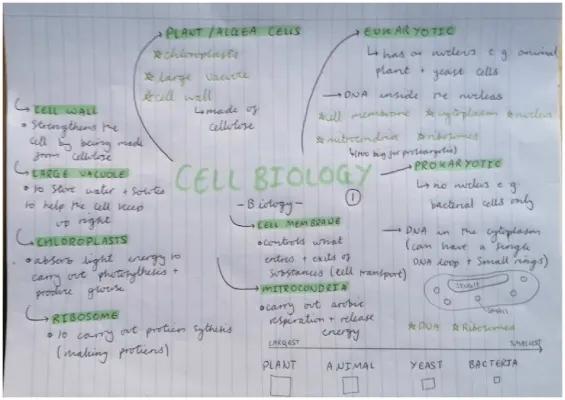 PLANT/ALGEA CELLS
☆ chloroplasts
☆ large vacuole
☆ cell wall
↳ made of
cellulose
EUKARYOTIC
↳ has a nucleus e.g. animal
plant + yeast cells
→ DNA inside the nucleus
☆ cell membrane ☆ cytoplasm ☆ nucleus
☆ mitocondria ☆ ribosomes
↳ (too big for prokaryotic)
PROKARYOTIC
↳ no nucleus e.g.
bacterial cells only
→ DNA in the cytoplasm
(can have a single
DNA loop + small rings)
☆ DNA ☆ Ribosomes
CELL WALL
• Strengthens the
cell by being made
from cellulose
LARGE VACUOLE
• to store water + solutes
to help the cell keep
up right
CHLOROPLASTS
• absorb light energy to
carry out photosythesis +
produce glucose
RIBOSOME
• to carry out protien sythesis
(making protiens)
CELL BIOLOGY
- Biology -
1
CELL MEMBRANE
• controls what
entres + exits of
substances (cell transport)
MITOCONDRIA
• carry out arobic
respiration + release
energy
LARGEST → SMALLEST
PLANT ANIMAL YEAST BACTERIA